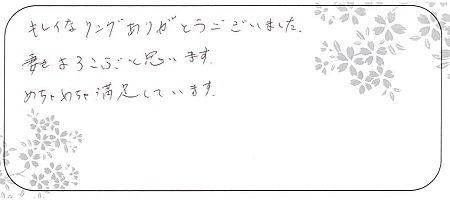 キレイなリングありがとうございました.
妻もよろこぶと思います.
めちゃめちゃ満足しています.